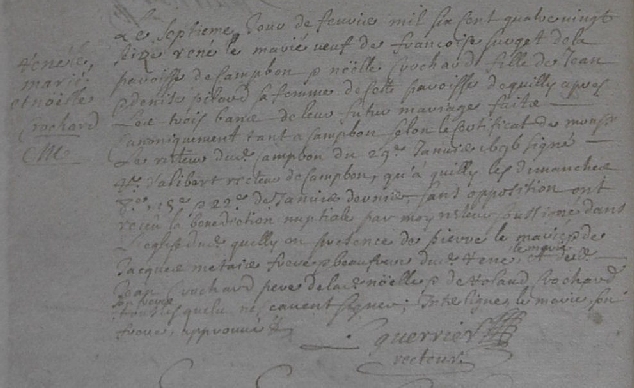 Le Septieme Jour de fevrier mil six cent quatre vingt
seize rene le marié veuf de francoise surget de la
parroisse de Campbon & noëlle Crochard fille de Jean
& denise pitard sa femme de cette parroisse de quilly apres
Les trois bans de leur futur mariage faits
Canoniquement tant a Campbon selon le certificat de monsr
Le recteur dud. Campbon du 29e Janvier 1696 signé
dalibert recteur de Campbon, qu'a quilly les dimanches
8e, 15e & 22e de Janvier dernier, sans opposition ont
receu la benediction nuptiale par moy recteur soussigné dans
L'eglise de quilly en presence de pierre le marié & de
Jacques metaire frere & beaufrere dud. rene le marié et de
Jean Crochard pere de lad. noëlle & de Roland Crochard
son frere
tous lesquels ne scavent signer; Interlignes le marié, son
frere, approuvés
rene le
marié
et noëlle
Crochard
guerrier
recteur